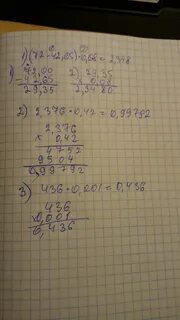 1)(72-42,65)·0,08=2,348
1) 72,00 2) 29,35
- 42,65 × 0,08
29,35 2,3480
2) 2,376·0,42=0,99792
2,376
× 0,42
4752
9504
0,99792
3) 436·0,001=0,436
436
×0,001
0,436